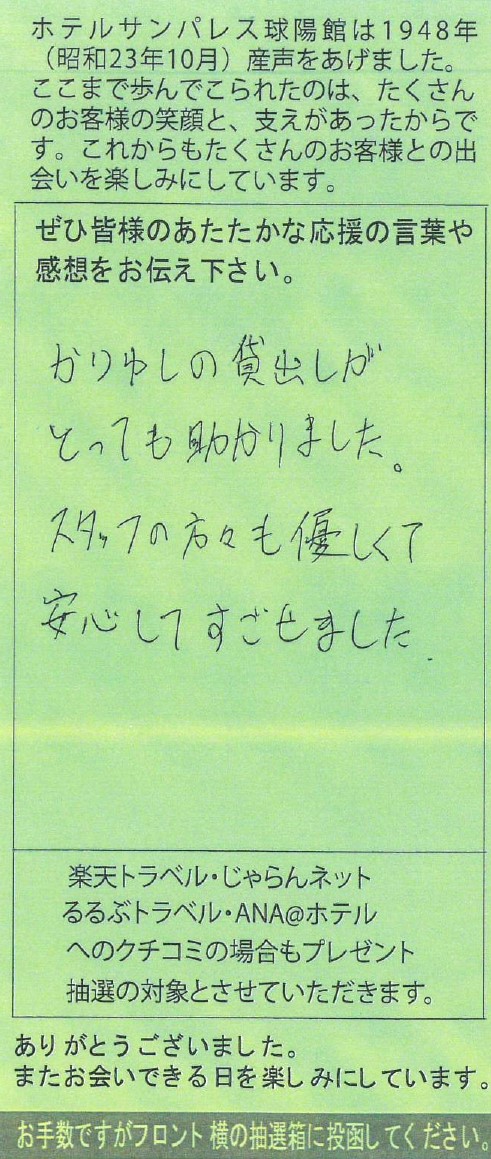 ホテルサンパレス球陽館は1948年
（昭和23年10月）産声をあげました。
ここまで歩んでこられたのは、たくさん
のお客様の笑顔と、支えがあったからで
す。これからもたくさんのお客様との出
会いを楽しみにしています。
ぜひ皆様のあたたかな応援の言葉や
感想をお伝え下さい。
かりゆしの貸出しが
とっても助かりました。
スタッフの方々も優しくて
安心してすごせました.
楽天トラベル・じゃらんネット
るるぶトラベル・ANA@ホテル
へのクチコミの場合もプレゼント
抽選の対象とさせていただきます。
ありがとうございました。
またお会いできる日を楽しみにしています。
お手数ですがフロント横の抽選箱に投函してください。